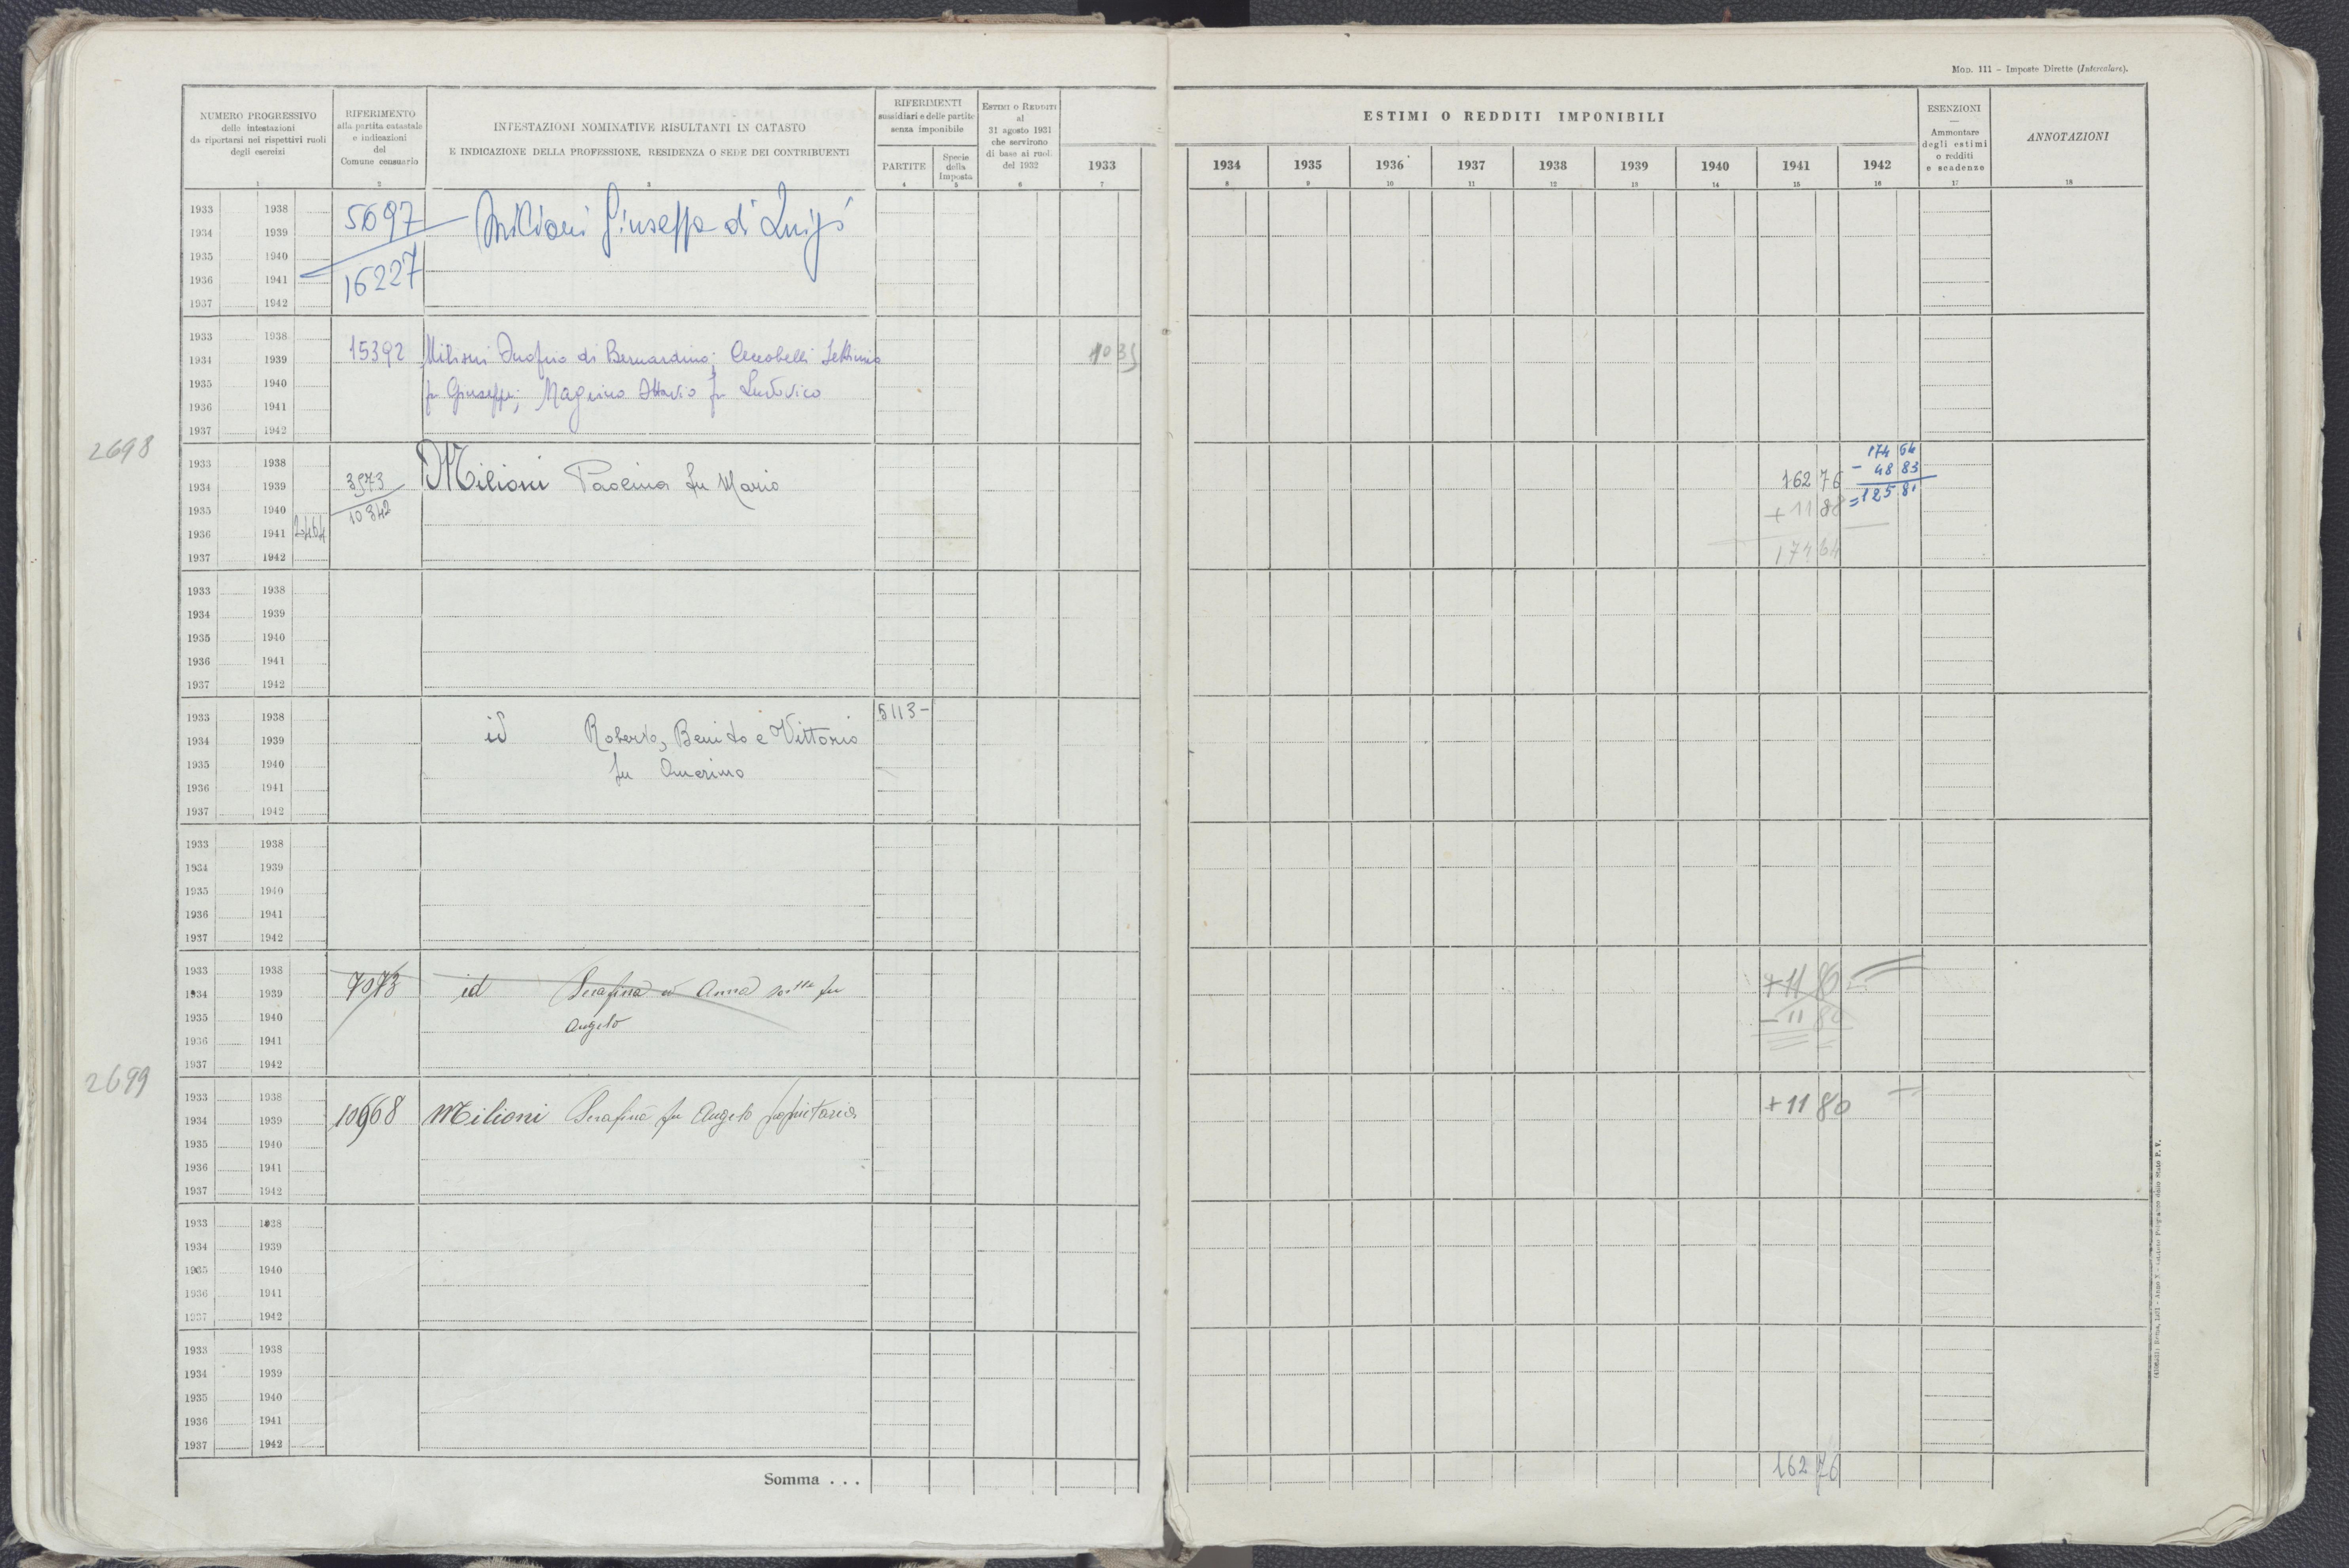 MOD. 111 – Imposte Dirette (Intercalare).
NUMERO PROGRESSIVO
delle intestazioni
da riportarsi nei rispettivi ruoli
degli esercizi
1
RIFERIMENTO
alla partita catastale
e indicazioni
del
Comune censuario
2
INTESTAZIONI NOMINATIVE RISULTANTI IN CATASTO
E INDICAZIONE DELLA PROFESSIONE, RESIDENZA O SEDE DEI CONTRIBUENTI
3
RIFERIMENTI
sussidiari e delle partite
senza imponibile
PARTITE
4
Specie
della
Imposta
5
ESTIMI O REDDITI
al
31 agosto 1931
che servirono
di base ai ruoli
del 1932
6
1933
7
ESTIMI O REDDITI IMPONIBILI
1934 1935 1936 1937 1938 1939 1940 1941 1942
8 9 10 11 12 13 14 15 16
ESENZIONI
—
Ammontare
degli estimi
o redditi
e scadenze
17
ANNOTAZIONI
18
1933 1938
1934 1939
1935 1940
1936 1941
1937 1942
5697
16227
Milioni Giuseppa di Luigi
1933 1938
1934 1939
1935 1940
1936 1941
1937 1942
15392 Milioni Onofrio di Bernardino; Ceccobelli Settimia
fu Giuseppe; Magrino Ottavio fu Ludovico
1035
2698
1933 1938
1934 1939
1935 1940
1936 1941 2464
1937 1942
3973
10342
Milioni Paolina fu Mario
162 76
+ 11 88
174 64
174 64
- 48 83
= 125 81
1933 1938
1934 1939
1935 1940
1936 1941
1937 1942
1933 1938
1934 1939
1935 1940
1936 1941
1937 1942
id Roberto, Benito e Vittorio
fu Amerino
5113 -
1933 1938
1934 1939
1935 1940
1936 1941
1937 1942
1933 1938
1934 1939
1935 1940
1936 1941
1937 1942
7073 id Serafina ed Anna sorelle fu
Angelo
+ 11 80
- 11 80
2699
1933 1938
1934 1939
1935 1940
1936 1941
1937 1942
10968 Milioni Serafina fu Angelo proprietaria
+ 11 80
1933 1938
1934 1939
1935 1940
1936 1941
1937 1942
1933 1938
1934 1939
1935 1940
1936 1941
1937 1942
Somma . . .
162 76